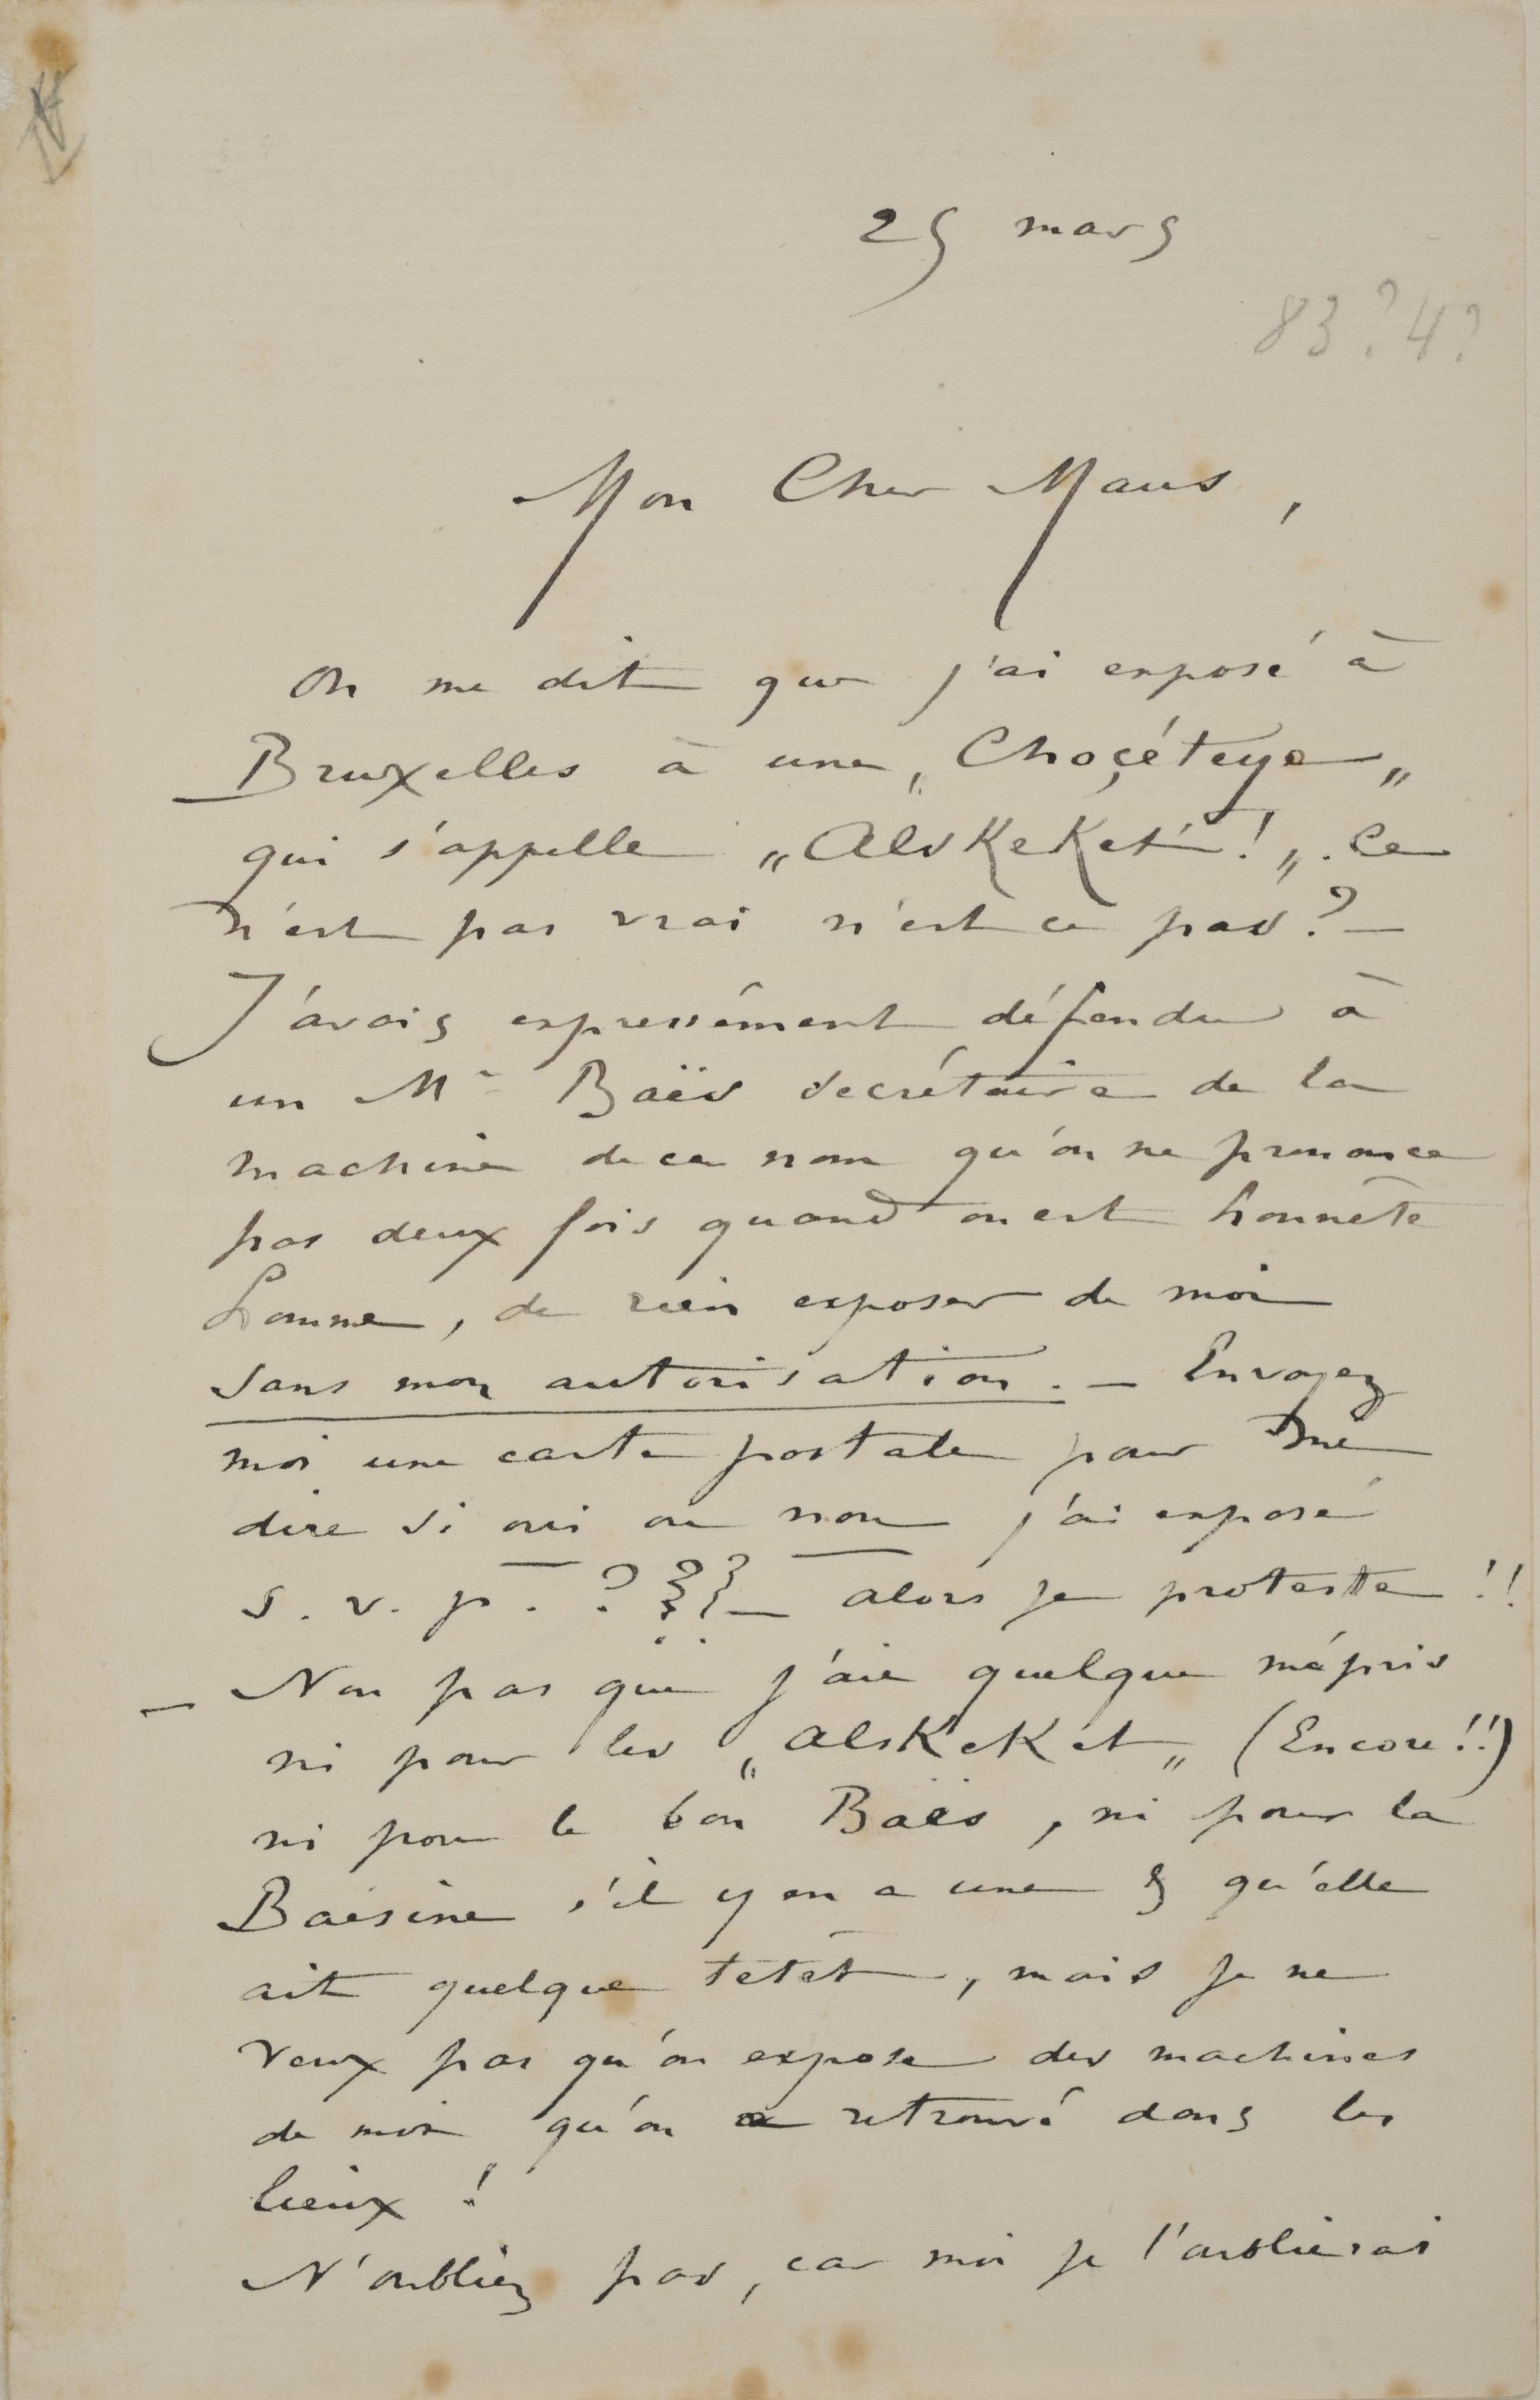 25 mars
83?4?
Mon Cher Maus,
On me dit que j'ai exposé à
Bruxelles à une „Choçéteye„
qui s'appelle „AlsKeKet! „. Ce
n'est pas vrai n'est ce pas? —
J'avais expressément défendu à
un Mr Baës secrétaire de la
machine de ce nom qu'on ne prononce
pas deux fois quand on est honnête
homme, de rien exposer de moi
sans mon autorisation. — Envoyez
moi une carte postale pour me
dire si oui ou non j'ai exposé
s. v. p. ? ?? — alors je proteste !!
— Non pas que j'aie quelque mépris
ni pour les „AlsKeKet„ (Encore!!)
ni pour le bon Baës, ni pour la
Baésine s'il y en a une & qu'elle
ait quelque tétèt, mais je ne
veux pas qu'on expose des machines
de moi qu'on a retrouvé dans les
lieux !
N'oubliez pas, car moi je l'oublierai